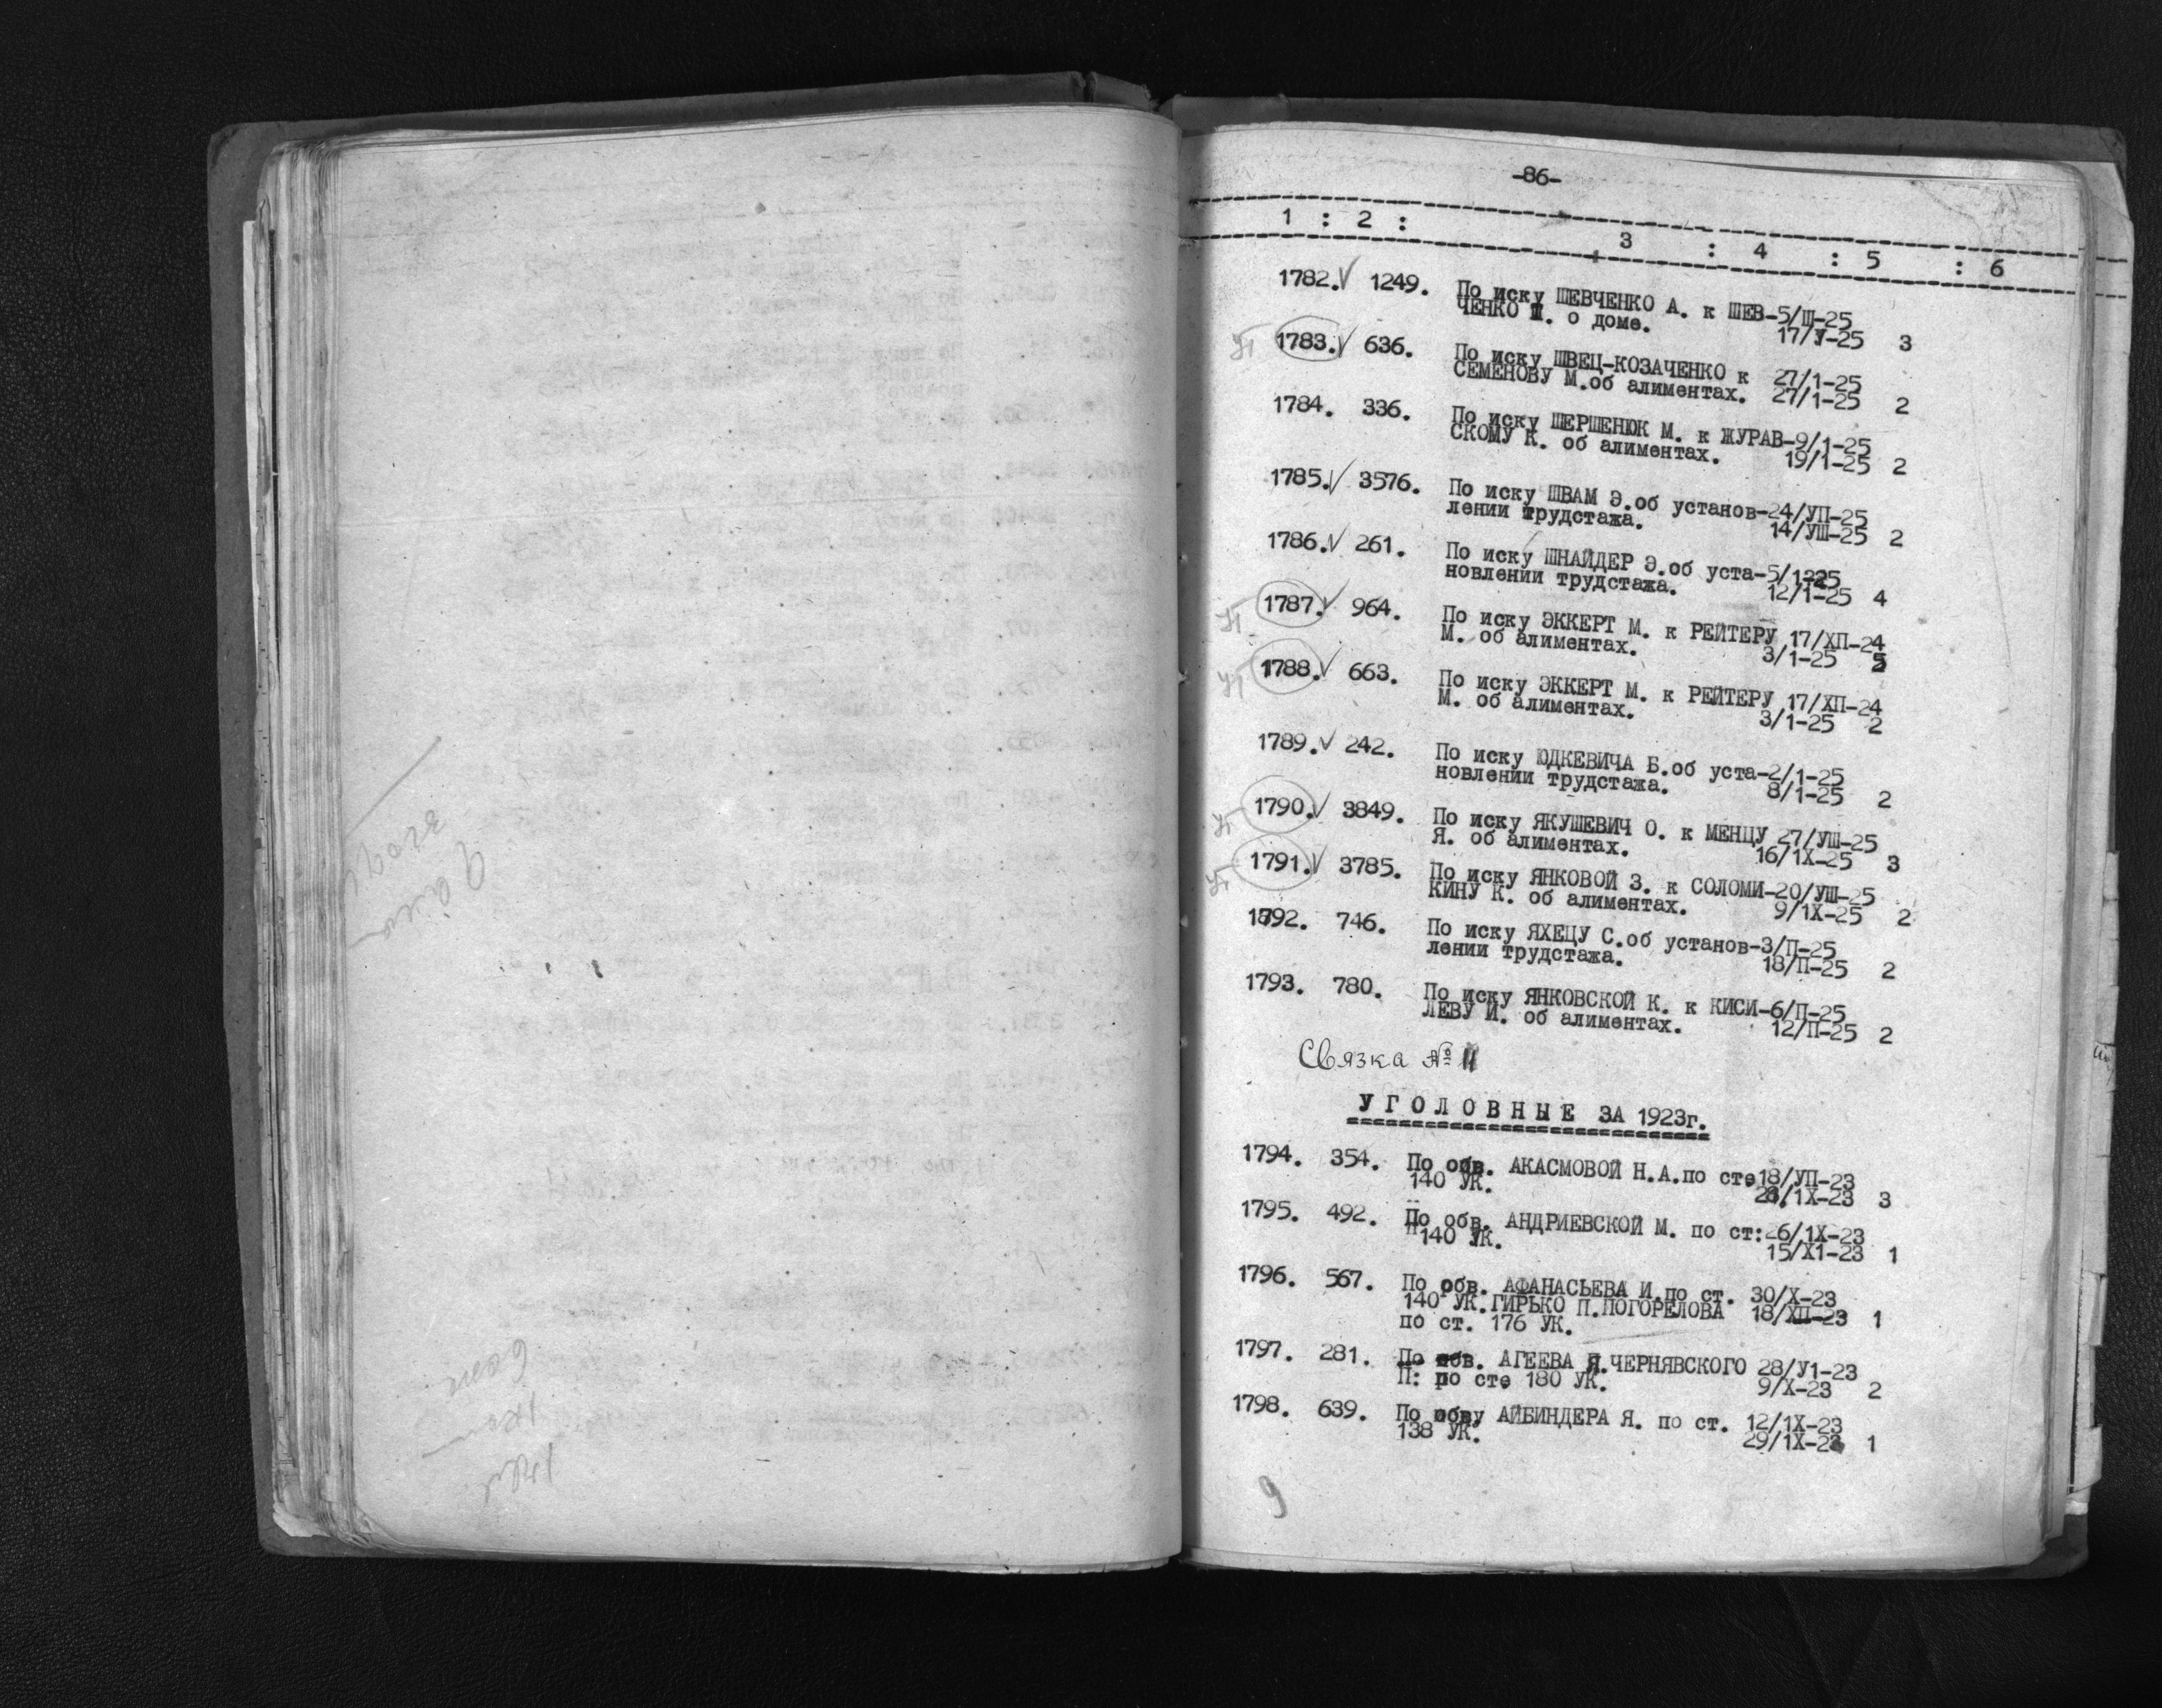 -86-
1 : 2 : 3 : 4 : 5 : 6
1782. 1249. По иску ШЕВЧЕНКО А. к ШЕВ-5/Ш-25
ЧЕНКО П. о доме. 17/У-25 3
1783. 636. По иску ШВЕЦ-КОЗАЧЕНКО к 27/1-25
СЕМЕНОВУ М.об алиментах. 27/1-25 2
1784. 336. По иску ШЕРШЕНЮК М. к ЖУРАВ-9/1-25
СКОМУ К. об алиментах. 19/1-25 2
1785. 3576. По иску ШВАМ Э.об установ-24/УП-25
лении трудстажа. 14/УШ-25 2
1786. 261. По иску ШНАЙДЕР Э.об уста-5/1-25
новлении трудстажа. 12/1-25 4
1787. 964. По иску ЭККЕРТ М. к РЕЙТЕРУ 17/ХП-24
М. об алиментах. 3/1-25 5
1788. 663. По иску ЭККЕРТ М. к РЕЙТЕРУ 17/ХП-24
М. об алиментах. 3/1-25 2
1789. 242. По иску ЮДКЕВИЧА Б.об уста-2/1-25
новлении трудстажа. 8/1-25 2
1790. 3849. По иску ЯКУШЕВИЧ О. к МЕНЦУ 27/УШ-25
Я. об алиментах. 16/1Х-25 3
1791. 3785. По иску ЯНКОВОЙ З. к СОЛОМИ-20/УШ-25
КИНУ К. об алиментах. 9/1Х-25 2
1792. 746. По иску ЯХЕЦУ С.об установ-3/П-25
лении трудстажа. 18/П-25 2
1793. 780. По иску ЯНКОВСКОЙ К. к КИСИ-6/П-25
ЛЕВУ И. об алиментах. 12/П-25 2
Связка № 11
УГОЛОВНЫЕ ЗА 1923г.
1794. 354. По обв. АКАСМОВОЙ Н.А.по сте18/УП-23
140 УК. 28/1Х-23 3
1795. 492. По обв. АНДРИЕВСКОЙ М. по ст:26/1Х-23
"140 УК. 15/Х1-23 1
1796. 567. По обв. АФАНАСЬЕВА И.по ст. 30/Х-23
140 УК.ГИРЬКО П.ПОГОРЕЛОВА 18/ХП-23 1
по ст. 176 УК.
1797. 281. По обв. АГЕЕВА Я.ЧЕРНЯВСКОГО 28/У1-23
П: по сте 180 УК. 9/Х-23 2
1798. 639. По обву АЙБИНДЕРА Я. по ст. 12/1Х-23
138 УК. 29/1Х-23 1
9